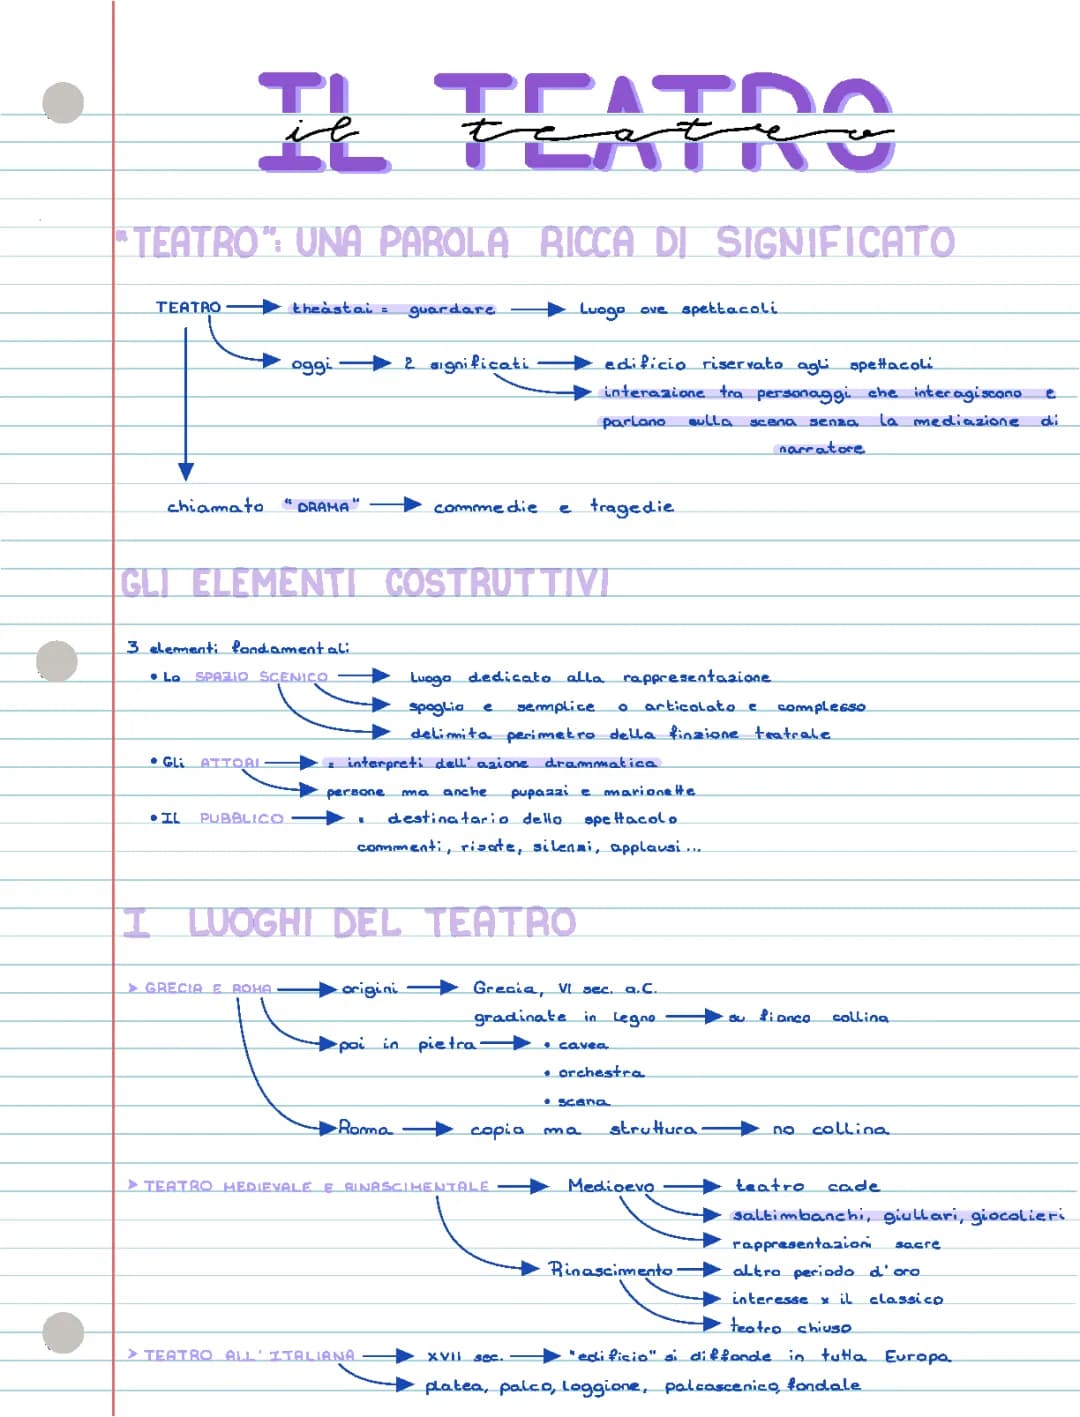 IL TEATRO
il teatro
"TEATRO": UNA PAROLA RICCA DI SIGNIFICATO
TEATRO theàstai = guardare luogo ove spettacoli
oggi 2 significati edificio riservato agli spettacoli
interazione tra personaggi che interagiscono e
parlano sulla scena senza la mediazione di
narratore
chiamato "DRAMA" commedie e tragedie
GLI ELEMENTI COSTRUTTIVI
3 elementi fondamentali
• Lo SPAZIO SCENICO luogo dedicato alla rappresentazione
spoglio e semplice o articolato e complesso
delimita perimetro della finzione teatrale
• Gli ATTORI = interpreti dell'azione drammatica
persone ma anche pupazzi e marionette
• IL PUBBLICO = destinatario dello spettacolo
commenti, risate, silenzi, applausi...
I LUOGHI DEL TEATRO
> GRECIA E ROMA origini Grecia, VI sec. a.C.
gradinate in legno su fianco collina
poi in pietra • cavea
• orchestra
• scena
Roma copia ma struttura no collina
> TEATRO MEDIEVALE E RINASCIMENTALE Medioevo teatro cade
saltimbanchi, giullari, giocolieri
rappresentazioni sacre
Rinascimento altro periodo d'oro
interesse x il classico
teatro chiuso
> TEATRO ALL'ITALIANA XVII sec. "edificio" si diffonde in tutta Europa
platea, palco, loggione, palcoscenico, fondale